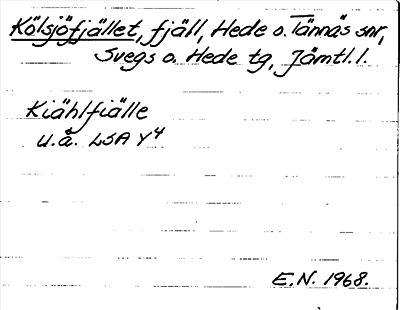 Kölsjöfjället, fjäll, Hede o. Tännäs snr,
Svegs o. Hede tg, Jämtl. l.
Kiählfiälle
u.å. LSA Y4
E.N. 1968.